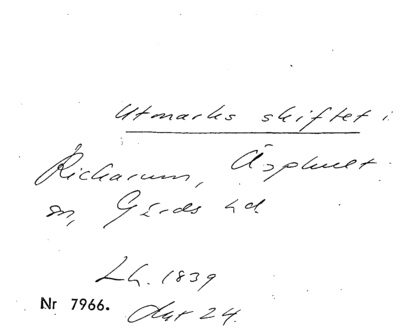 Utmarks skiftet i
Rickarum, Äsphult
sn, Gärds hd
Lh. 1839
Nr 7966. Akt 24.